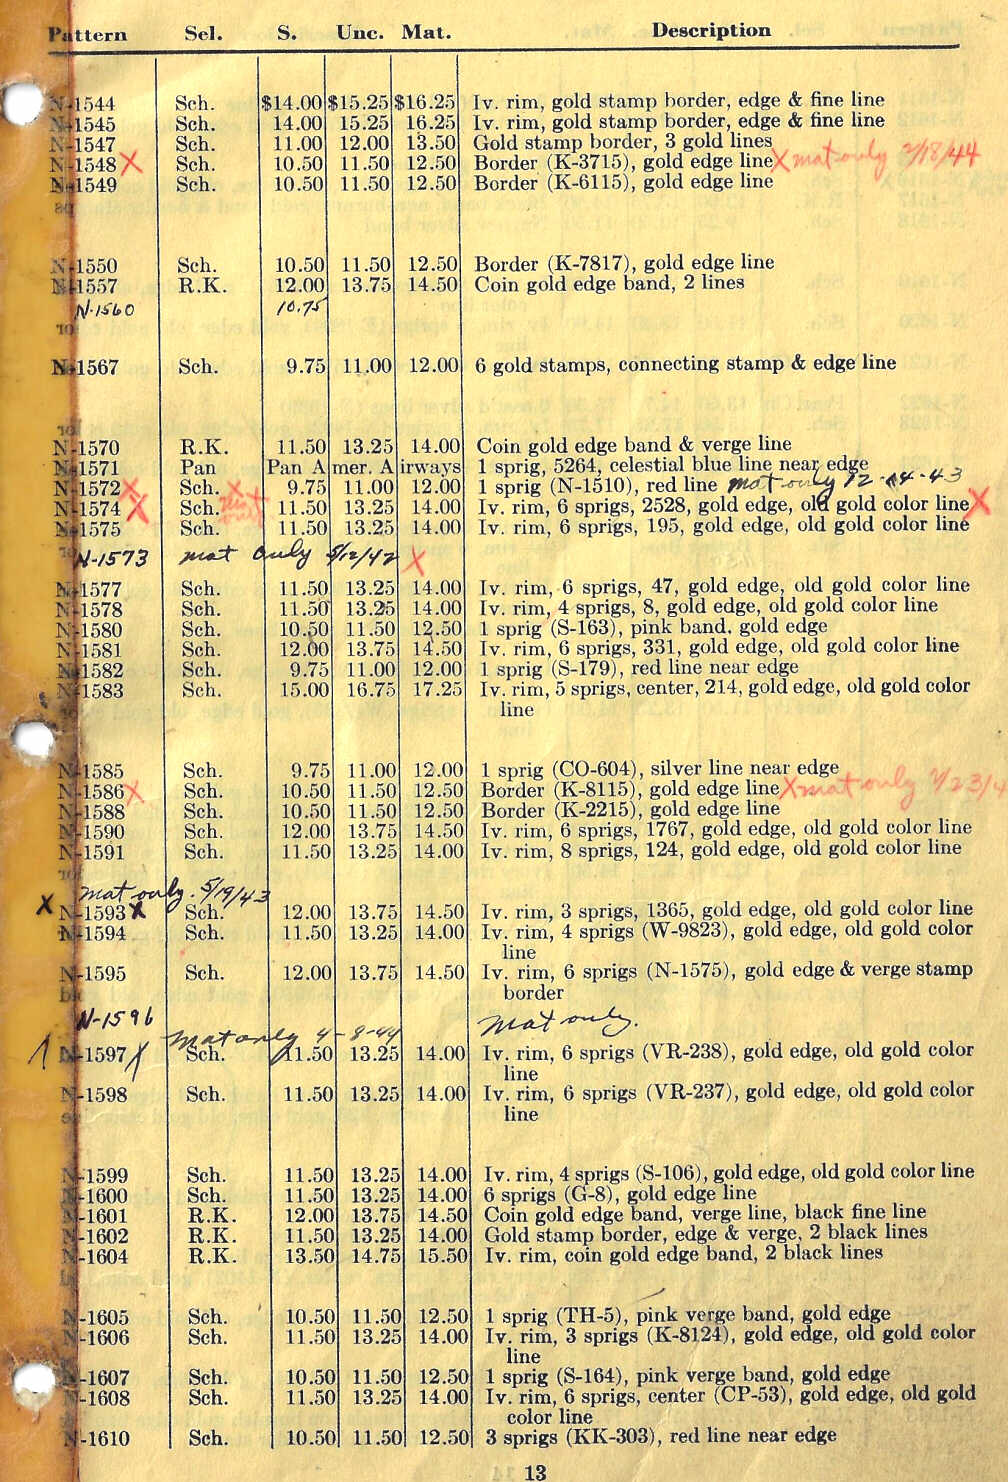 Pattern Sel. S. Unc. Mat. Description
N-1544 Sch. $14.00 $15.25 $16.25 Iv. rim, gold stamp border, edge & fine line
N-1545 Sch. 14.00 15.25 16.25 Iv. rim, gold stamp border, edge & fine line
N-1547 Sch. 11.00 12.00 13.50 Gold stamp border, 3 gold lines
N-1548 X Sch. 10.50 11.50 12.50 Border (K-3715), gold edge line X mat only 2/18/44
N-1549 Sch. 10.50 11.50 12.50 Border (K-6115), gold edge line
N-1550 Sch. 10.50 11.50 12.50 Border (K-7817), gold edge line
N-1557 R.K. 12.00 13.75 14.50 Coin gold edge band, 2 lines
N-1560 10.75
N-1567 Sch. 9.75 11.00 12.00 6 gold stamps, connecting stamp & edge line
N-1570 R.K. 11.50 13.25 14.00 Coin gold edge band & verge line
N-1571 Pan Pan Amer. Airways 1 sprig, 5264, celestial blue line near edge
N-1572 X Sch. X 9.75 11.00 12.00 1 sprig (N-1510), red line mat only 12-14-43
N-1574 X Sch. mat only 11.50 13.25 14.00 Iv. rim, 6 sprigs, 2528, gold edge, old gold color line X
N-1575 Sch. 11.50 13.25 14.00 Iv. rim, 6 sprigs, 195, gold edge, old gold color line
N-1573 mat only 5/12/42 X
N-1577 Sch. 11.50 13.25 14.00 Iv. rim, 6 sprigs, 47, gold edge, old gold color line
N-1578 Sch. 11.50 13.25 14.00 Iv. rim, 4 sprigs, 8, gold edge, old gold color line
N-1580 Sch. 10.50 11.50 12.50 1 sprig (S-163), pink band, gold edge
N-1581 Sch. 12.00 13.75 14.50 Iv. rim, 6 sprigs, 331, gold edge, old gold color line
N-1582 Sch. 9.75 11.00 12.00 1 sprig (S-179), red line near edge
N-1583 Sch. 15.00 16.75 17.25 Iv. rim, 5 sprigs, center, 214, gold edge, old gold color
line
N-1585 Sch. 9.75 11.00 12.00 1 sprig (CO-604), silver line near edge
N-1586 X Sch. 10.50 11.50 12.50 Border (K-8115), gold edge line X mat only 2/23/4
N-1588 Sch. 10.50 11.50 12.50 Border (K-2215), gold edge line
N-1590 Sch. 12.00 13.75 14.50 Iv. rim, 6 sprigs, 1767, gold edge, old gold color line
N-1591 Sch. 11.50 13.25 14.00 Iv. rim, 8 sprigs, 124, gold edge, old gold color line
mat only. 5/19/43
X N-1593 X Sch. 12.00 13.75 14.50 Iv. rim, 3 sprigs, 1365, gold edge, old gold color line
N-1594 Sch. 11.50 13.25 14.00 Iv. rim, 4 sprigs (W-9823), gold edge, old gold color
line
N-1595 Sch. 12.00 13.75 14.50 Iv. rim, 6 sprigs (N-1575), gold edge & verge stamp
border
N-1596 Mat only.
Mat only 4-8-44
N-1597 X Sch. 11.50 13.25 14.00 Iv. rim, 6 sprigs (VR-238), gold edge, old gold color
line
N-1598 Sch. 11.50 13.25 14.00 Iv. rim, 6 sprigs (VR-237), gold edge, old gold color
line
N-1599 Sch. 11.50 13.25 14.00 Iv. rim, 4 sprigs (S-106), gold edge, old gold color line
N-1600 Sch. 11.50 13.25 14.00 6 sprigs (G-8), gold edge line
N-1601 R.K. 12.00 13.75 14.50 Coin gold edge band, verge line, black fine line
N-1602 R.K. 11.50 13.25 14.00 Gold stamp border, edge & verge, 2 black lines
N-1604 R.K. 13.50 14.75 15.50 Iv. rim, coin gold edge band, 2 black lines
N-1605 Sch. 10.50 11.50 12.50 1 sprig (TH-5), pink verge band, gold edge
N-1606 Sch. 11.50 13.25 14.00 Iv. rim, 3 sprigs (K-8124), gold edge, old gold color
line
N-1607 Sch. 10.50 11.50 12.50 1 sprig (S-164), pink verge band, gold edge
N-1608 Sch. 11.50 13.25 14.00 Iv. rim, 6 sprigs, center (CP-53), gold edge, old gold
color line
N-1610 Sch. 10.50 11.50 12.50 3 sprigs (KK-303), red line near edge
13